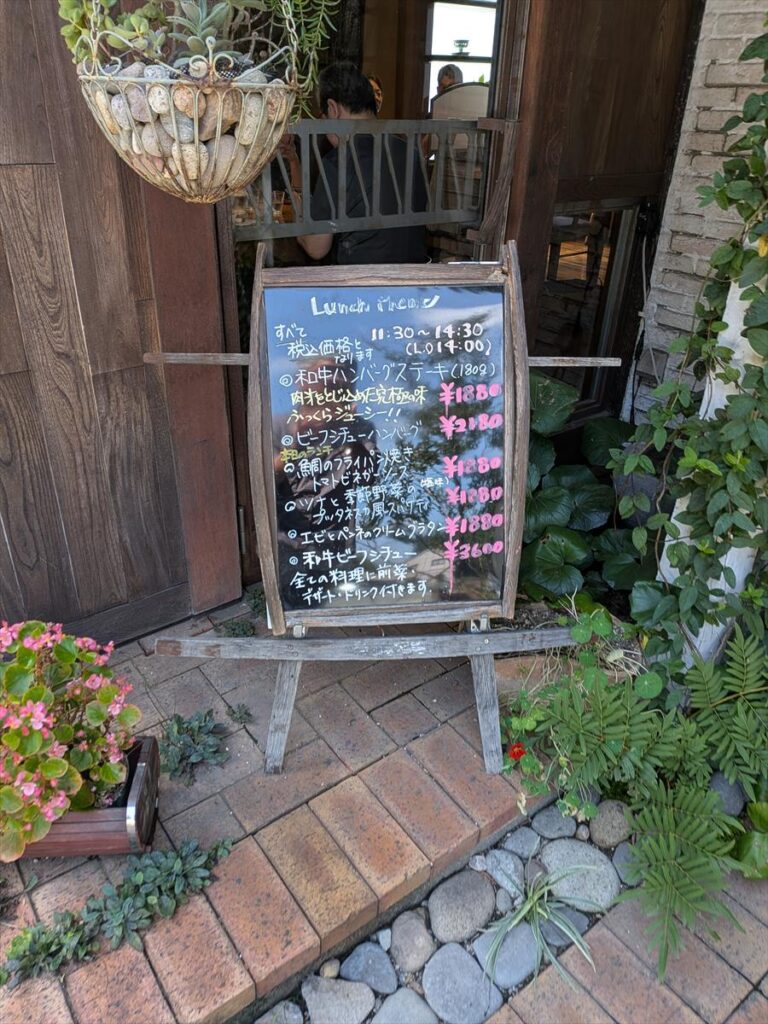 Lunch menu
すべて
税込価格と
なります
11:30〜14:30
(L.O 14:00)
◎和牛ハンバーグステーキ(180g)
肉汁をとじ込めた究極の味
ふっくらジューシー!!
¥1880
◎ビーフシチューハンバーグ
¥2180
本日のランチ
◎鯛のフライパン焼き
トマトビネガーソース
¥1880
◎ツナと季節野菜の
プッタネスカ風スパゲティ
¥1880
◎エビとペンネのクリームグラタン
¥1880
◎和牛ビーフシチュー
¥3600
全ての料理に前菜・
デザート・ドリンク付きます